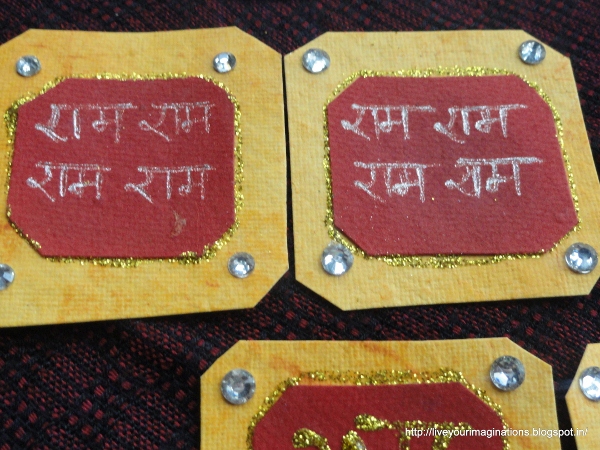 राम राम
राम राम
राम राम
राम राम
http://liveyourimaginations.blogspot.in/